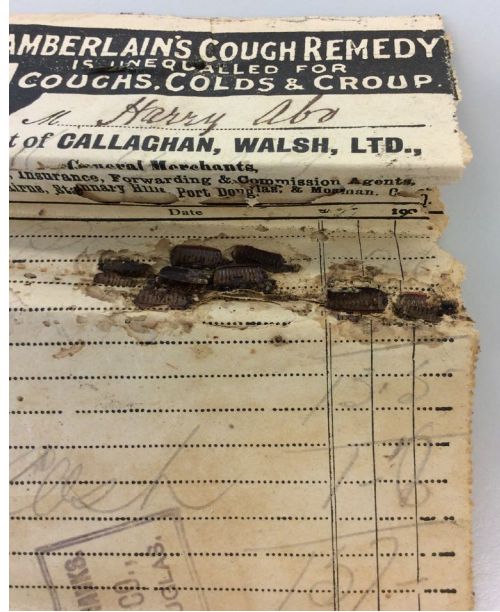 AMBERLAIN'S COUGH REMEDY
IS UNEQUALLED FOR
COUGHS, COLDS & CROUP
M. Harry Abo
t of CALLAGHAN, WALSH, LTD.,
General Merchants,
Insurance, Forwarding & Commission Agents,
irns, Stannary Hills, Port Douglas, & Mossman.
Date 190
15.5
Cash
THANKS
CO.,
UGLAS.